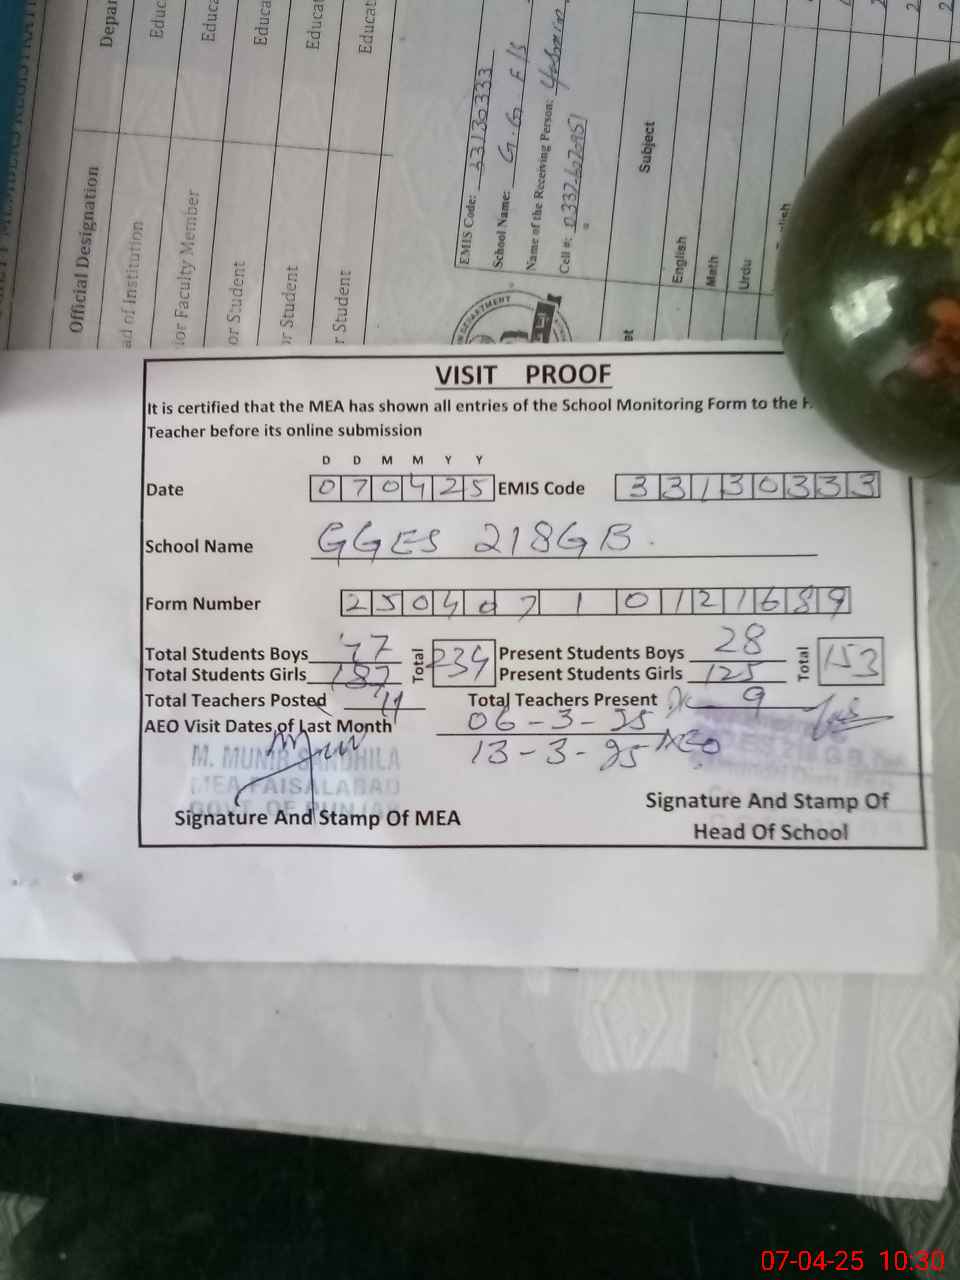 Official Designation
Senior Student
EMIS Code: 33130333
School Name: G.G E/S
Name of the Receiving Person: Yasmin
Cell #:
Subject
English
Math
Urdu
DEPARTMENT
VISIT PROOF
It is certified that the MEA has shown all entries of the School Monitoring Form to the
Teacher before its online submission
D D M M Y Y
Date 070425 EMIS Code 33130333
School Name GGES 218GB.
Form Number 250407 1 0121689
Total Students Boys 47 Total 234 Present Students Boys 28 Total 153
Total Students Girls 187 Present Students Girls 125
Total Teachers Posted 11 Total Teachers Present 9
AEO Visit Dates of Last Month 06-3-25
13-3-25 AEO
M. MUNIR SANDHILA
MEA FAISALABAD
GOVT OF PUNJAB
Signature And Stamp Of MEA
Signature And Stamp Of
Head Of School
07-04-25 10:30